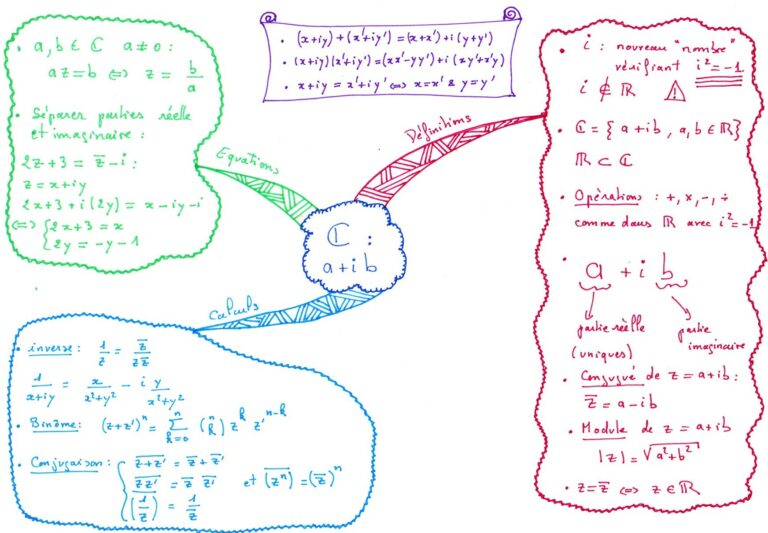 • (x+iy)+(x'+iy') = (x+x')+i(y+y')
• (x+iy)(x'+iy') = (xx'-yy')+i(xy'+x'y)
• x+iy = x'+iy' ⇔ x=x' & y=y'
• a,b ∈ ℂ a≠0 :
az=b ⇔ z = b/a
• Séparer parties réelle
et imaginaire :
2z+3 = z̅-i :
z = x+iy
2x+3+i(2y) = x-iy-i
⇔ { 2x+3 = x
2y = -y-1
Equations
Définitions
ℂ :
a+ib
Calculs
• i : nouveau "nombre"
vérifiant i²=-1
i ∉ ℝ ⚠
• ℂ = { a+ib, a,b ∈ ℝ}
ℝ ⊂ ℂ
• Opérations : +, ×, -, ÷
comme dans ℝ avec i²=-1
• a + i b
partie réelle partie
(uniques) imaginaire
• Conjugué de z = a+ib :
z̅ = a-ib
• Module de z = a+ib
|z| = √(a²+b²)
• z=z̅ ⇔ z∈ℝ
• inverse : 1/z = z̅/(zz̅)
1/(x+iy) = x/(x²+y²) - i y/(x²+y²)
• Binôme : (z+z')ⁿ = ∑ₖ₌₀ⁿ (n k) zᵏ z'ⁿ⁻ᵏ
• Conjugaison : { \overline{z+z'} = z̅+z̅'
\overline{zz'} = z̅ z̅' et \overline{(zⁿ)} = (z̅)ⁿ
\overline{(1/z)} = 1/z̅